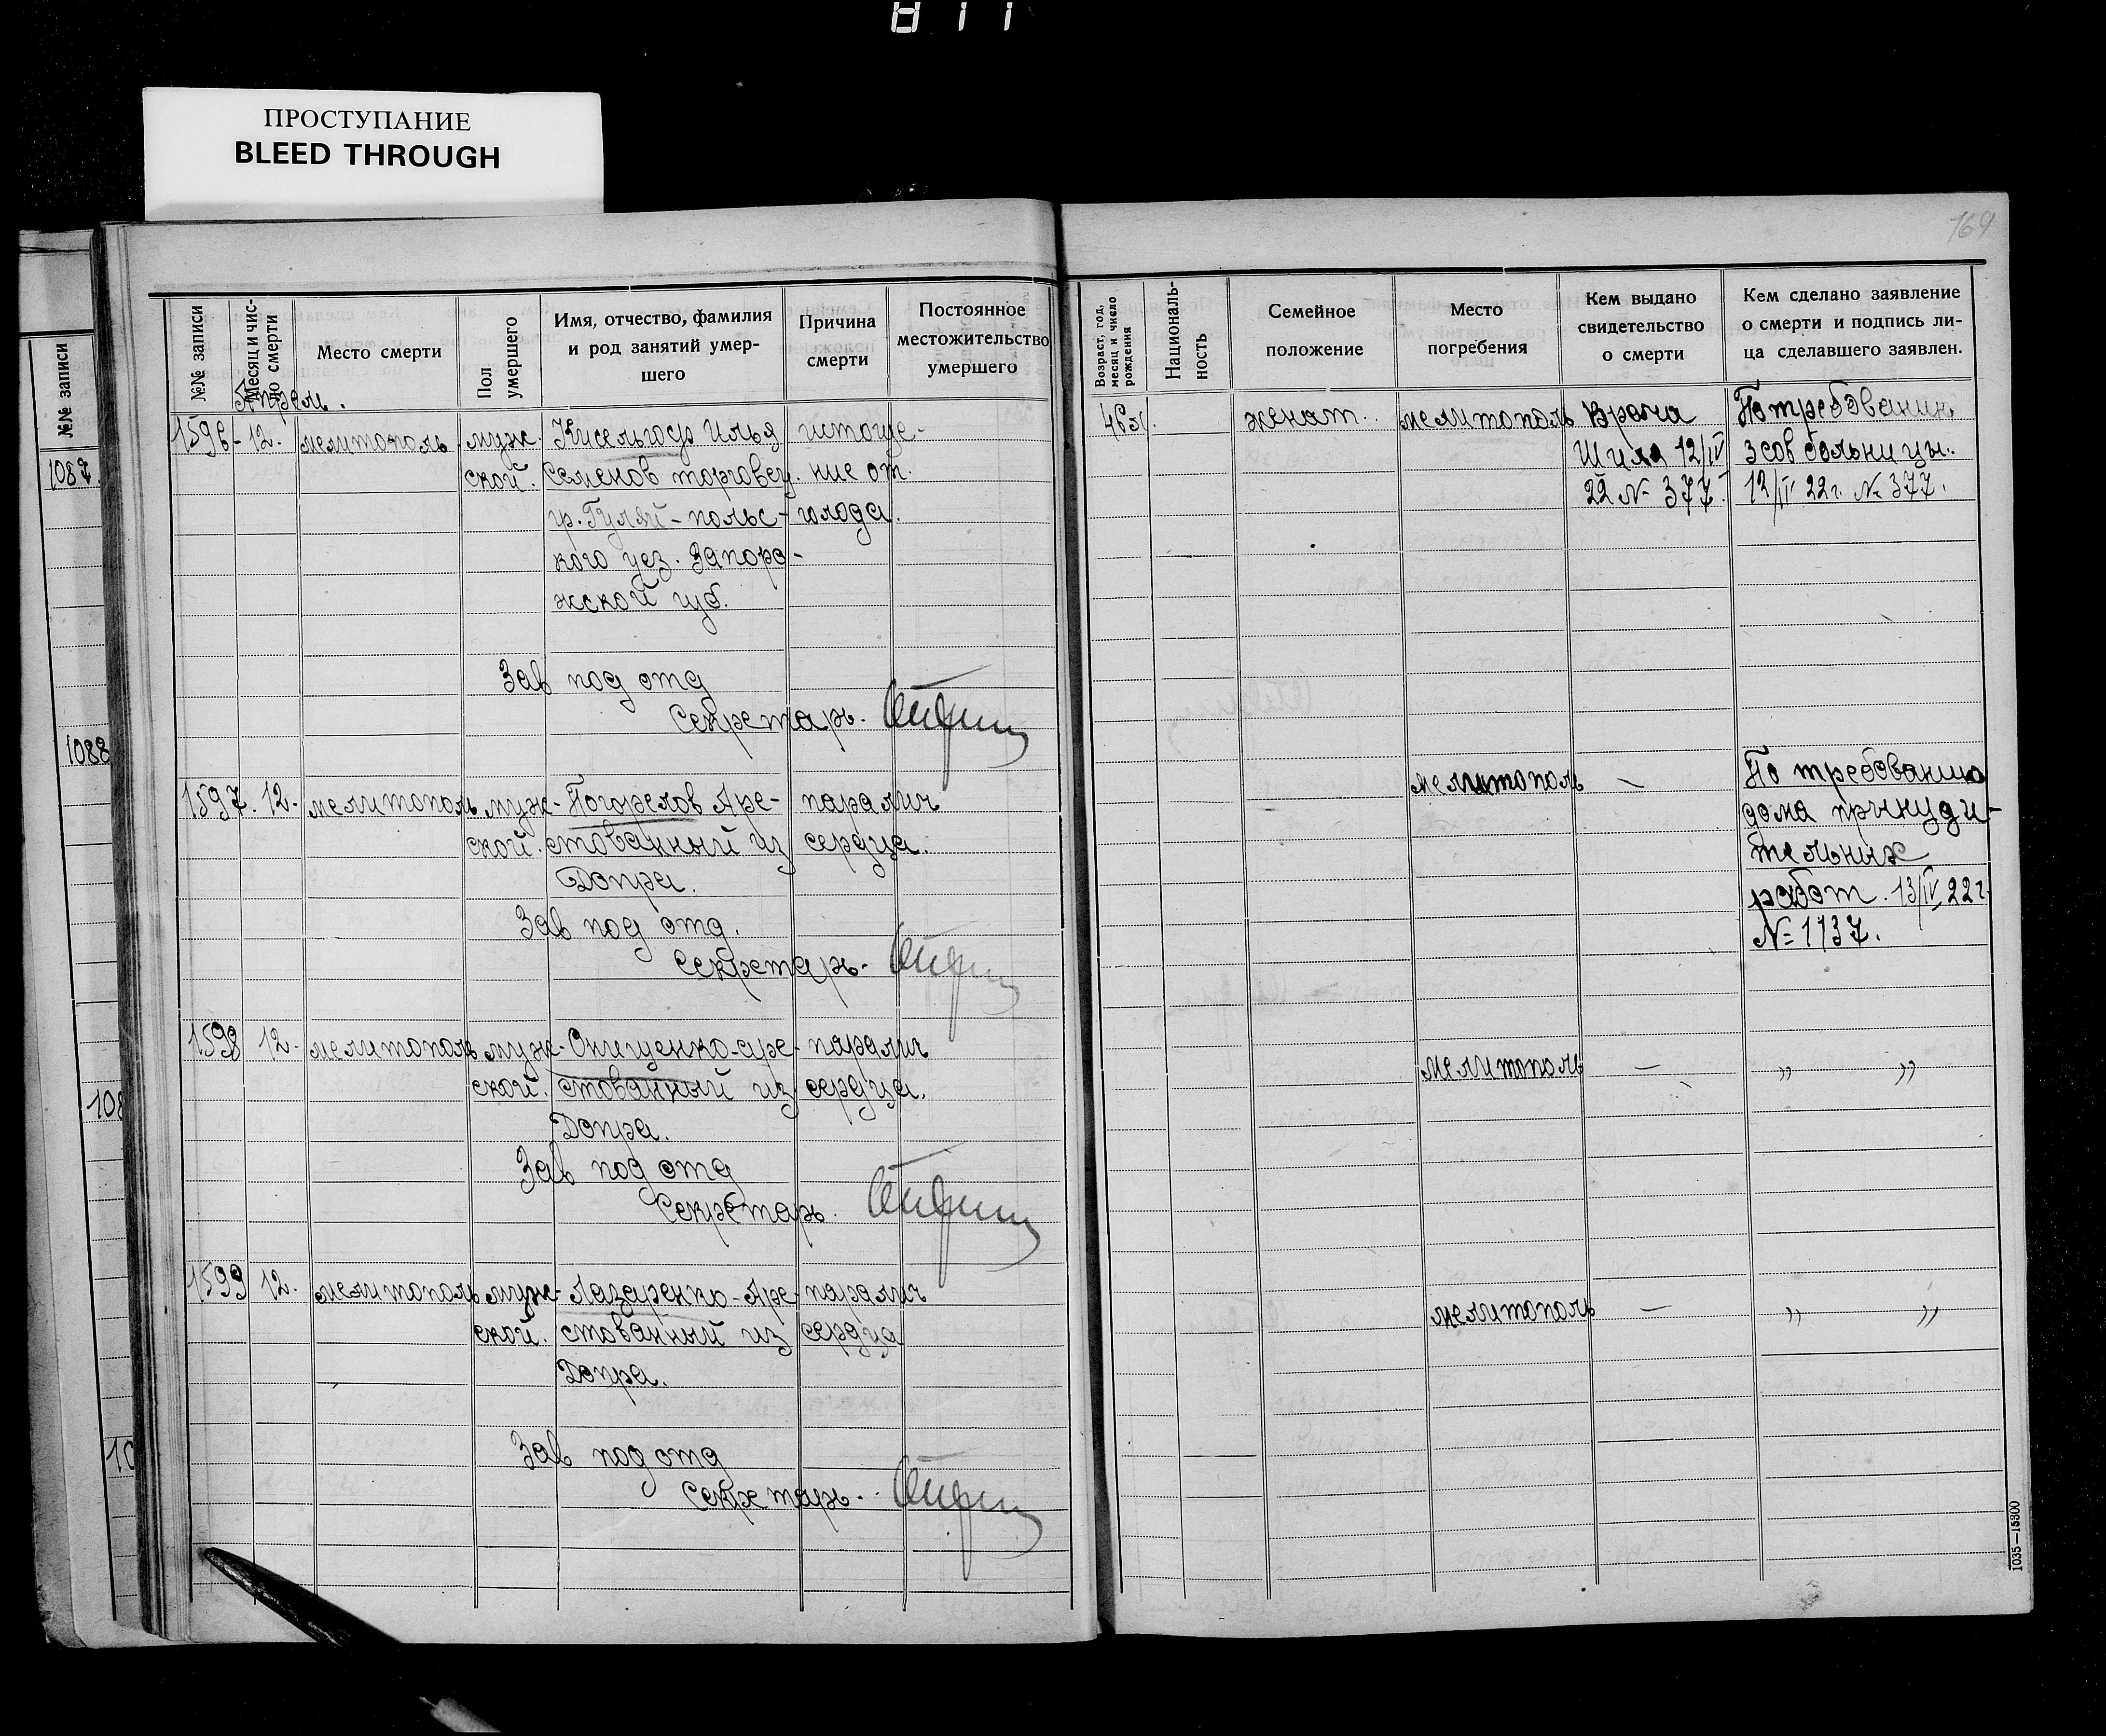 811
ПРОСТУПАНИЕ
BLEED THROUGH
169
№№ записи
1087.
1088
108
10
№№ записи
Месяц и чис-
ло смерти
Место смерти
Пол
умершего
Имя, отчество, фамилия
и род занятий умер-
шего
Причина
смерти
Постоянное
местожительство
умершего
Возраст, год,
месяц и число
рождения
Националь-
ность
Семейное
положение
Место
погребения
Кем выдано
свидетельство
о смерти
Кем сделано заявление
о смерти и подпись ли-
ца сделавшего заявлен.
Апрель.
1596- 12. мелитополь муж- Илья истоще- 46 женат. мелитополь Врача По требованию
ской. Семенов торговец. ние от 12/IV больницы.
гр. Гуляй-польс- голода. 22 № 377. 12/IV 22г. № 377.
кого уез. Запоро-
жской губ.
Зав под отд
Секретарь.
1597. 12. мелитополь муж- Погорелов Аре- паралич мелитополь — По требованию
ской. стованный из сердца. дома принуди-
Допра. тельных
Зав под отд. работ. 13/IV 22г.
Секретарь. № 1137.
1598 12. мелитополь муж- Онищенко-аре- паралич мелитополь — ,, ,,
ской. стованный из сердца.
Допра.
Зав под отд
Секретарь.
1599 12. мелитополь муж- Лазаренко-Аре- паралич мелитополь — ,, ,,
ской. стованный из сердца
Допра.
Зав под отд
Секретарь.
1035—15300